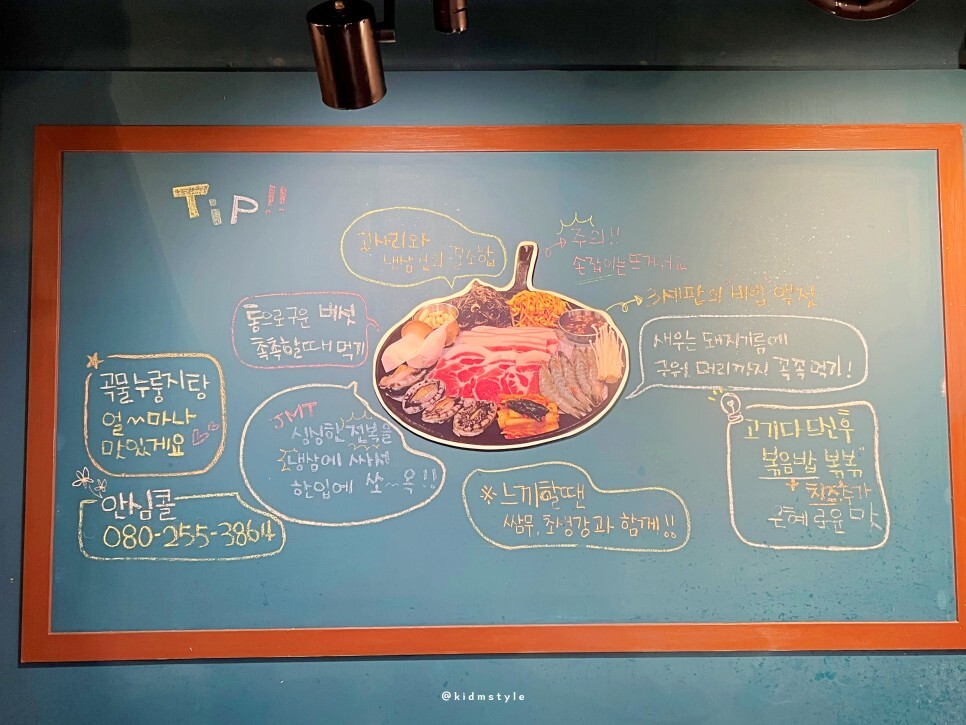 Tip!!
고사리와
냉삼의 꿀조합
주의!!
손잡이는 뜨거워요
3세판의 비밀
통으로 구운 버섯
촉촉할때 먹기
새우는 돼지기름에
구워 머리까지 쪽쪽 먹기!
곡물누룽지탕
얼~마나
맛있게요
JMT
싱싱한 전복을
냉삼에 싸서
한입에 쏘~옥!!
고기 다 드신후
볶음밥 볶볶
치즈추가
은혜로운 맛
안심콜
080-255-3864
※느끼할땐
쌈무, 초생강과 함께!!
@kidmstyle